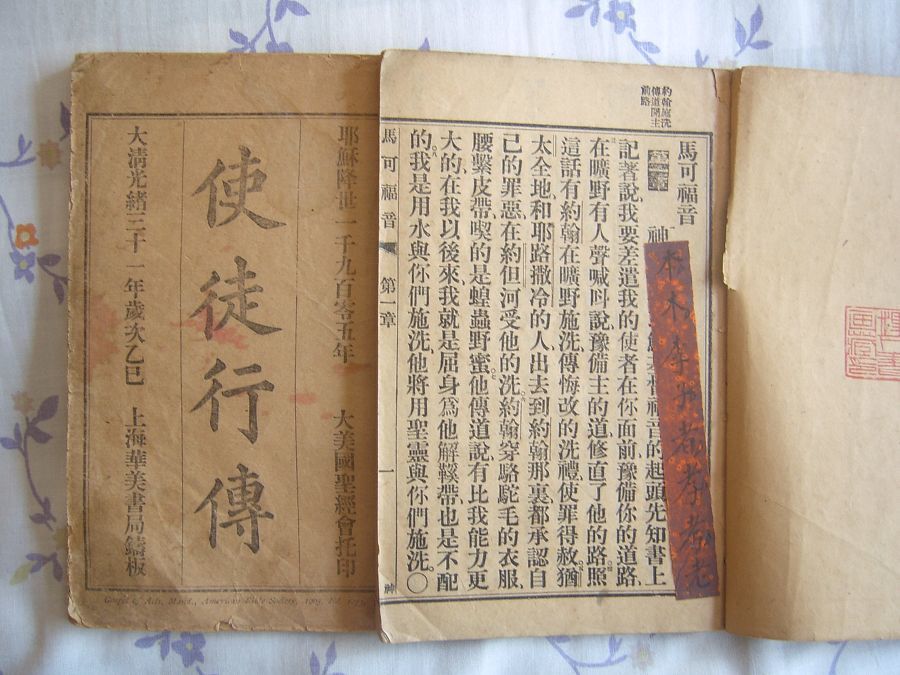 耶穌降世一千九百零五年 大美國聖經會托印
使徒行傳
大清光緒三十一年歲次乙巳 上海華美書局鑄板
American Bible Society, 1905.
約翰施洗
傳道開主
前路
馬可福音
第一章
神 福音的起頭先知書上
記著說、我要差遣我的使者在你面前、豫備你的道路、
在曠野有人聲喊叫說、豫備主的道、修直了他的路。照
這話有約翰在曠野施洗、傳悔改的洗禮、使罪得赦。猶
太全地、和耶路撒冷的人、出去到約翰那裏、都承認自
己的罪惡、在約但河受他的洗。約翰穿駱駝毛的衣服、
腰繫皮帶、喫的是蝗蟲野蜜。他傳道說、有比我能力更
大的、在我以後來、我就是屈身爲他解鞵帶、也是不配
的。我是用水與你們施洗、他將用聖靈與你們施洗。〇
馬可福音 第一章 一 神